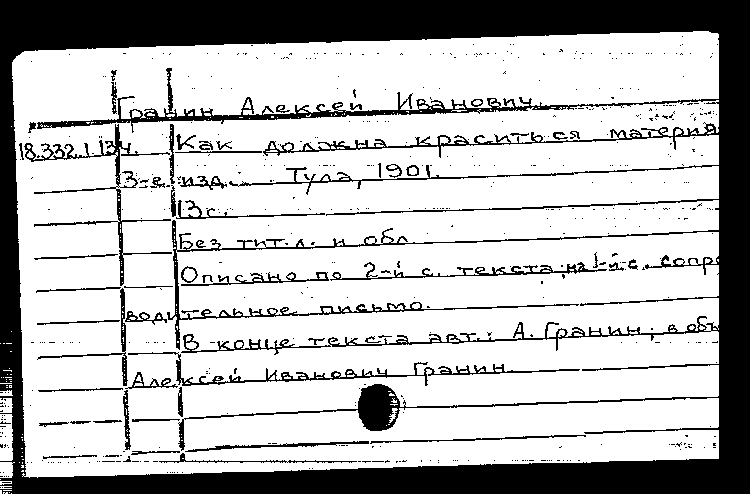 Гранин, Алексей Иванович.
18.332.1.134. Как должна краситься материя
3-е изд. Тула, 1901.
13с.
Без тит.л. и обл.
Описано по 2-й с. текста; на 1-й с. сопро
водительное письмо.
В конце текста авт.: А. Гранин; в объ
Алексей Иванович Гранин.